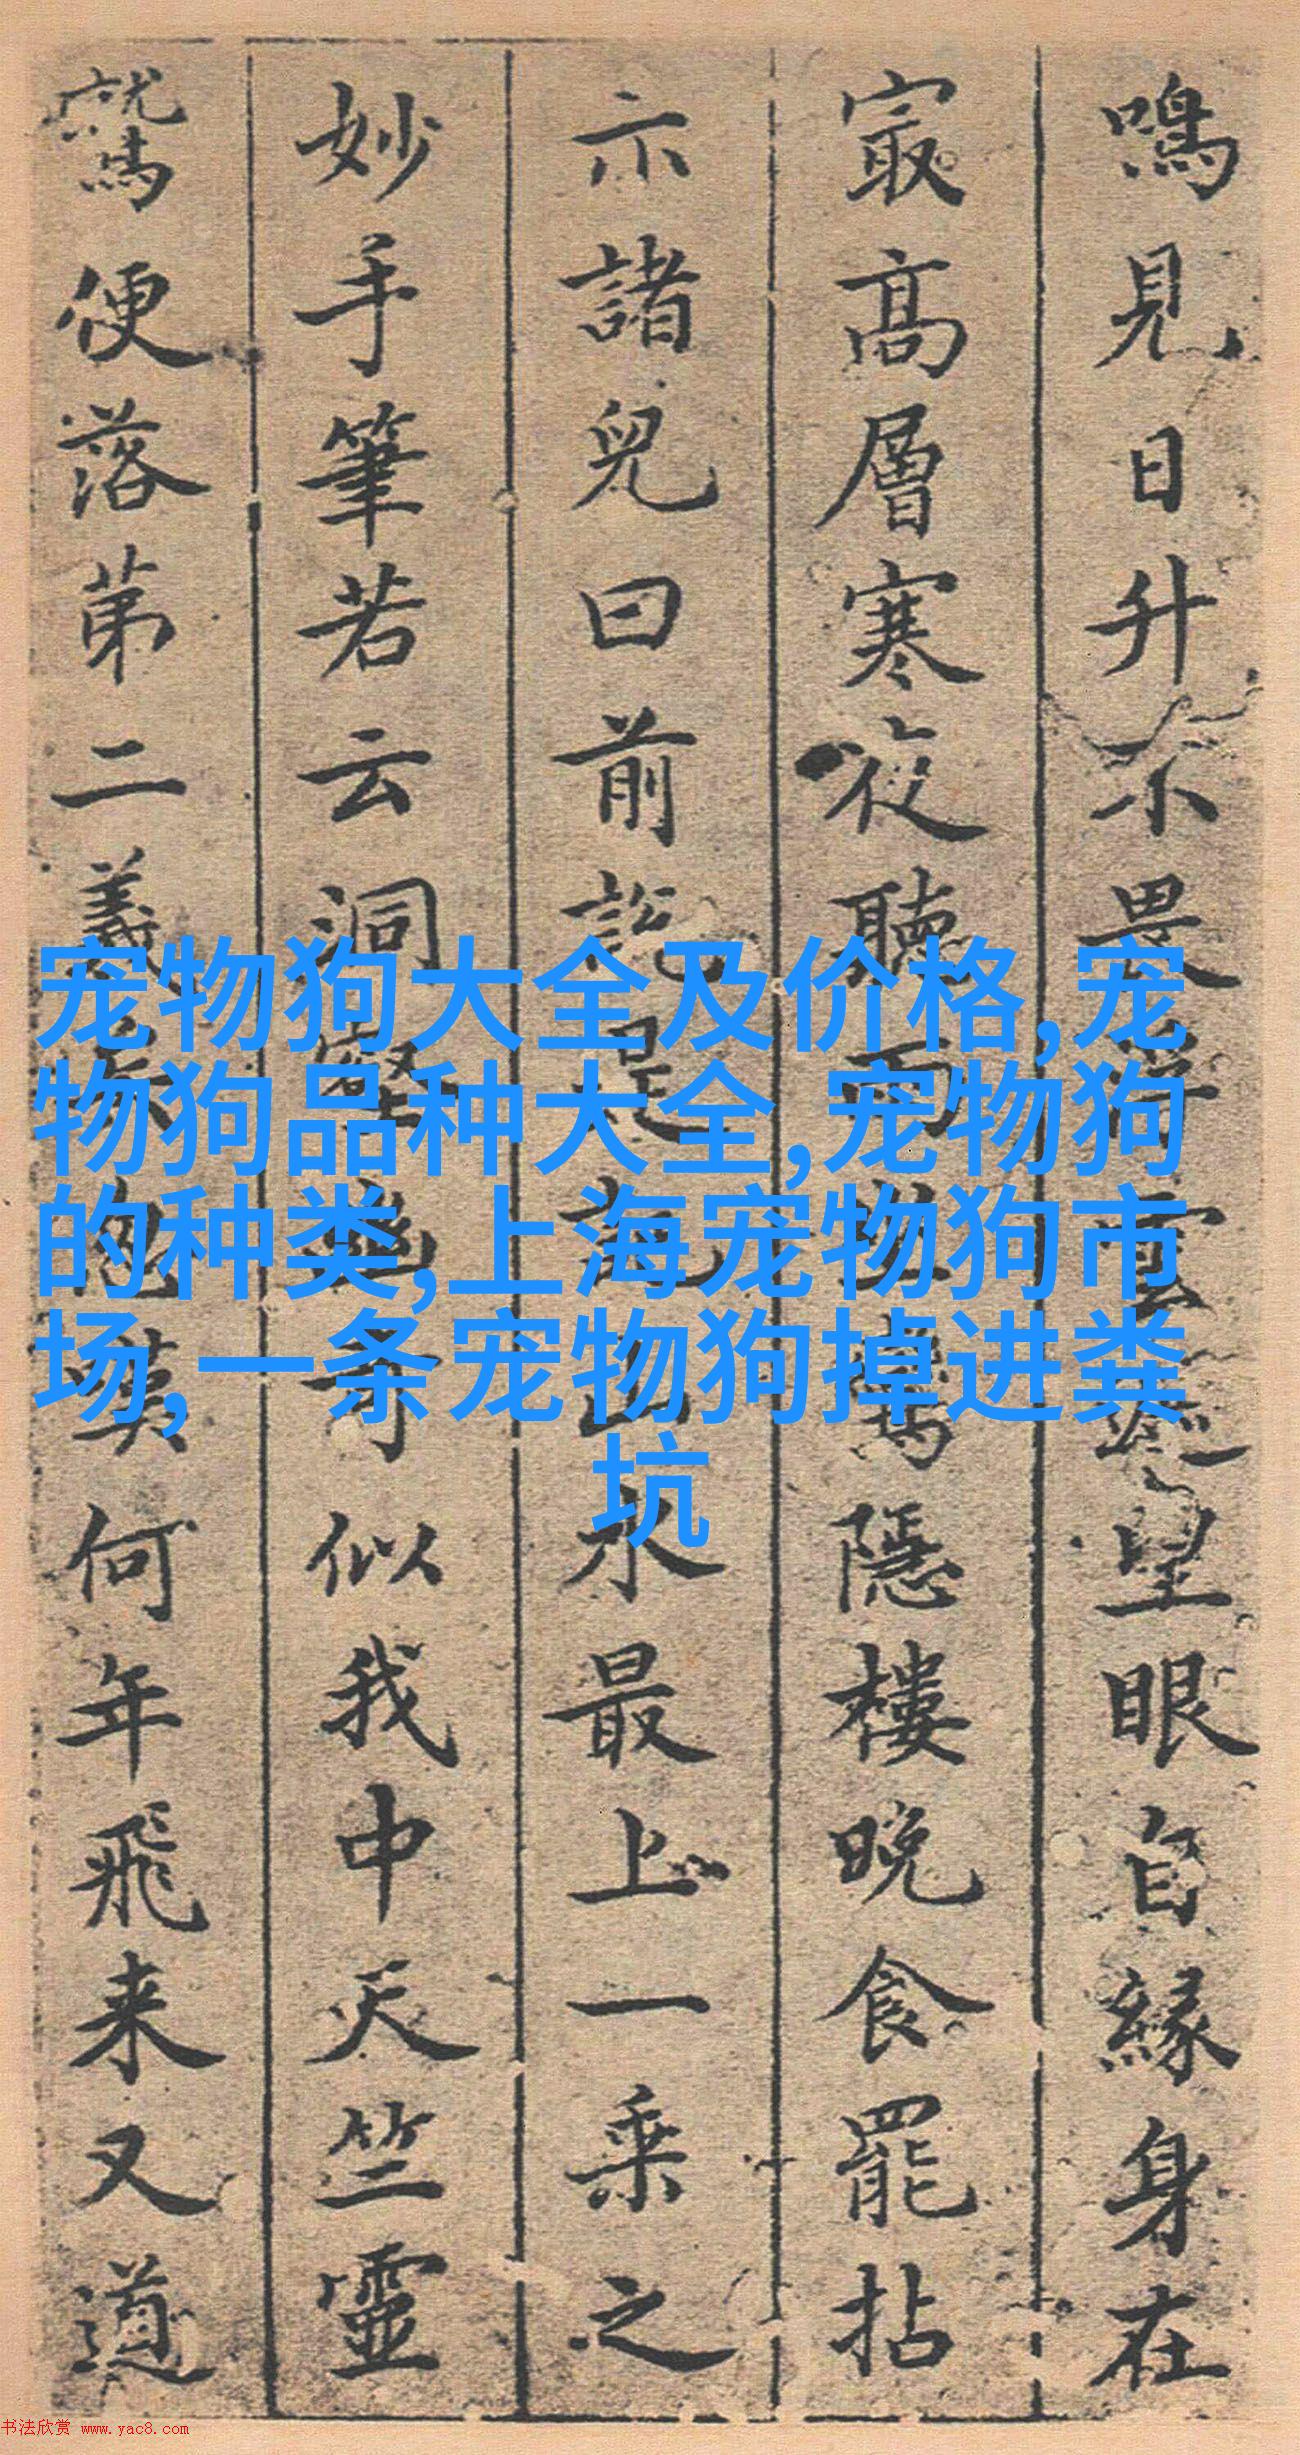 鳴見日升不畏浮雲遮望眼自緣身在
冣高層寒夜聽雨隱樓晚食罷拈
示諸兒曰前說是水最上一乘之
妙手筆若云洞壑幽奇似我中天竺靈
鷲便落第二義何年飛来又道
宠物狗大全及价格,宠
物狗品种大全,宠物狗
的种类,上海宠物狗市
场,一条宠物狗掉进粪
坑
书法欣赏 www.yac8.com